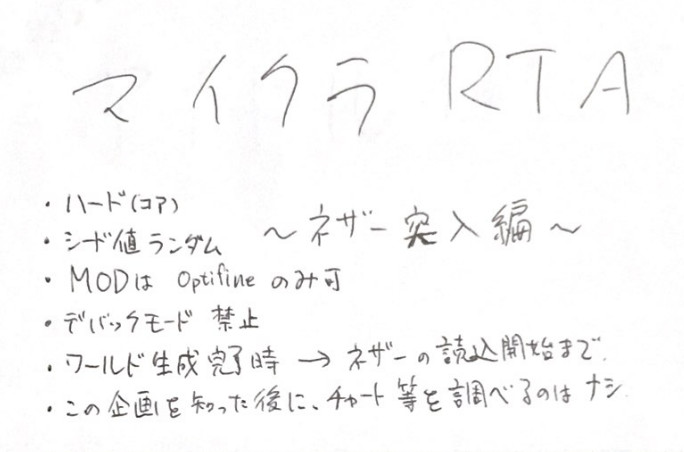 マイクラ RTA
～ネザー突入編～
・ハード(コア)
・シード値ランダム
・MODは Optifine のみ可
・デバックモード 禁止
・ワールド生成完了時 → ネザーの読込開始まで.
・この企画を知った後に、チャート等を調べるのはナシ.